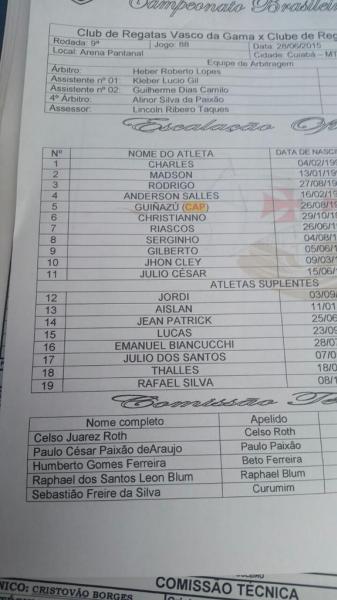 Campeonato Brasileir
Club de Regatas Vasco da Gama x Clube de Reg
Rodada: 9ª Jogo: 88 Data: 28/06/2015
Local: Arena Pantanal Cidade: Cuiabá - MT
Equipe de Arbitragem
Árbitro: Heber Roberto Lopes
Assistente nº 01: Kleber Lucio Gil
Assistente nº 02: Guilherme Dias Camilo
4º Árbitro: Alinor Silva da Paixão
Assessor: Lincoln Ribeiro Taques
Escalação Of
Nº NOME DO ATLETA DATA DE NASC
1 CHARLES 04/02/19
2 MADSON 13/01/19
3 RODRIGO 27/08/19
4 ANDERSON SALLES 16/02/19
5 GUIÑAZÚ (CAP) 26/08/19
6 CHRISTIANNO 29/10/19
7 RIASCOS 26/06/19
8 SERGINHO 04/08/1
9 GILBERTO 05/06/1
10 JHON CLEY 09/03/1
11 JULIO CÉSAR 15/06/1
ATLETAS SUPLENTES
12 JORDI 03/09/
13 AISLAN 11/01
14 JEAN PATRICK 25/06
15 LUCAS 23/09
16 EMANUEL BIANCUCCHI 28/07
17 JULIO DOS SANTOS 07/0
18 THALLES 18/0
19 RAFAEL SILVA 08/1
Comissão Té
Nome completo Apelido
Celso Juarez Roth Celso Roth
Paulo César Paixão deAraujo Paulo Paixão
Humberto Gomes Ferreira Beto Ferreira
Raphael dos Santos Leon Blum Raphael Blum
Sebastião Freire da Silva Curumim
COMISSÃO TÉCNICA
NICO: CRISTOVÃO BORGES